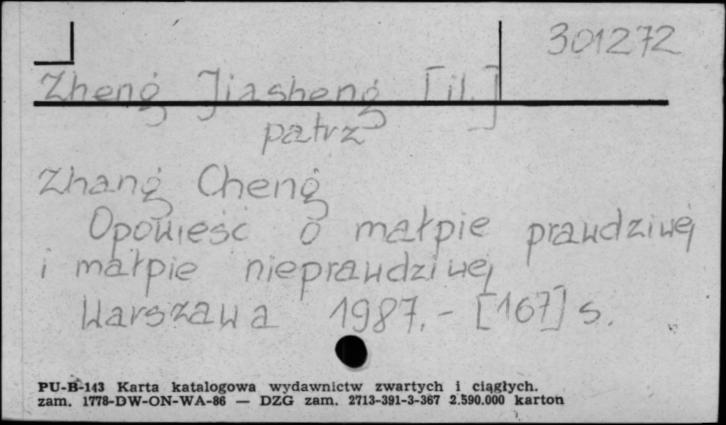 301272
Zheng Jiasheng [il.]
patrz
Zhang Cheng
Opowieść o małpie prawdziwej
i małpie nieprawdziwej
Warszawa 1987.- [167] s.
PU-B-143 Karta katalogowa wydawnictw zwartych i ciągłych.
zam. 1778-DW-ON-WA-86 — DZG zam. 2713-391-3-367 2.590.000 karton